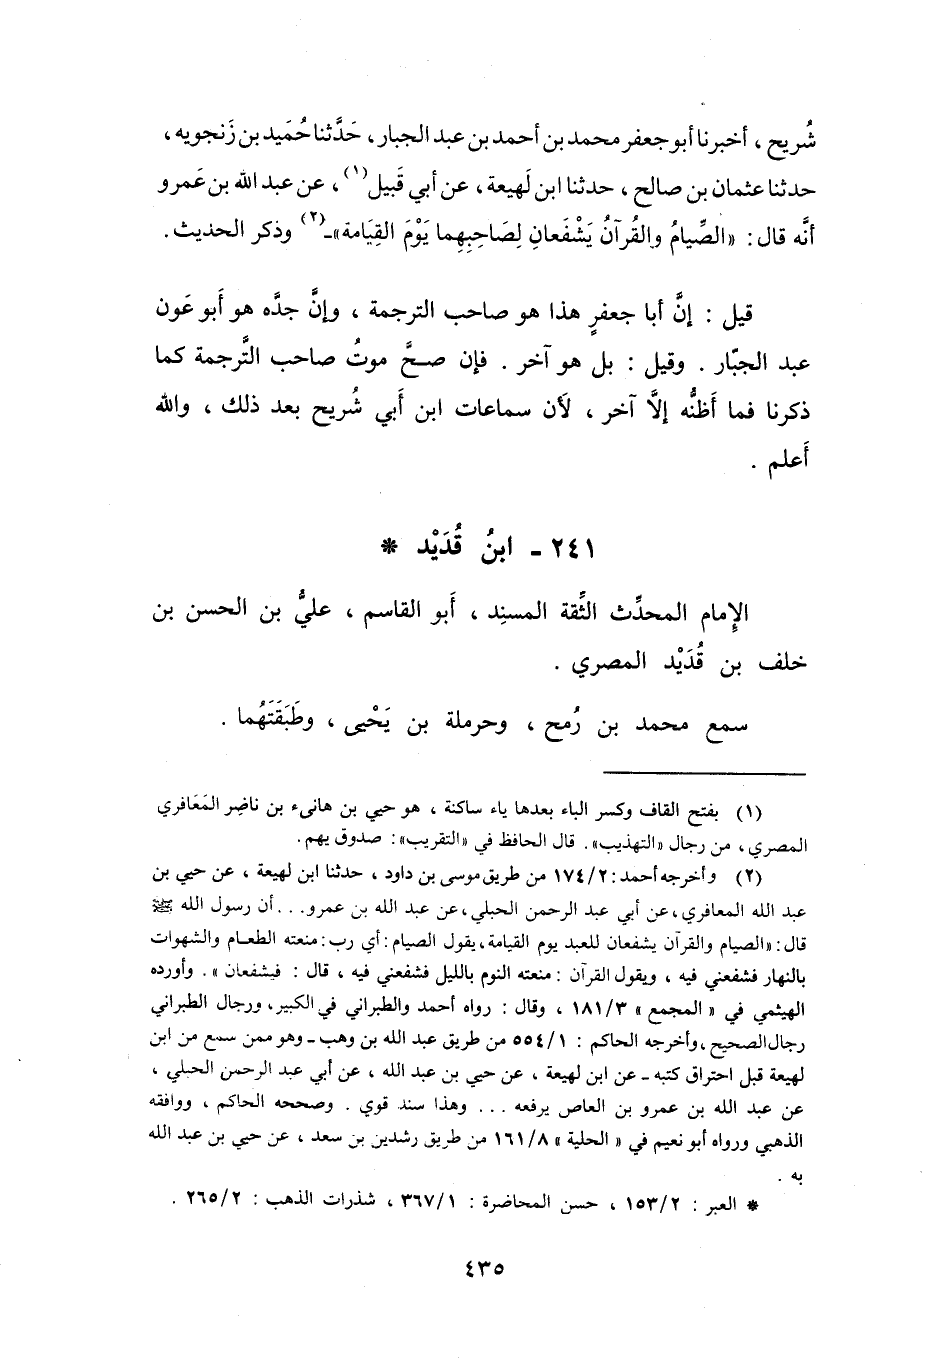 شُريح ، أخبرنا أبو جعفر محمد بن أحمد بن عبد الجبار، حَدَّثنا حُمَيد بن زَنجويه ،
حدثنا عثمان بن صالح ، حدثنا ابن لَهيعة ، عن أبي قَبيل(١)، عن عبد الله بن عَمرو
أنَّه قال: «الصِّيامُ والقُرآنُ يَشْفَعانِ لِصَاحِبِهِما يَوْمَ القِيَامة»ـ(٢) وذكر الحديث .
قيل : إنَّ أبا جعفرٍ هذا هو صاحب الترجمة ، وإنَّ جدَّه هو أَبو عَون
عبد الجبّار . وقيل : بل هو آخر . فإن صحَّ موتُ صاحب التَّرجمة كما
ذكرنا فما أَظنُّه إلَّا آخر ، لأَن سماعات ابن أَبي شُريح بعد ذلك ، والله
أَعلم .
٢٤١ ـ ابنُ قُدَيْد *
الإِمام المحدِّث الثِّقة المسنِد ، أَبو القاسم ، عليُّ بن الحسن بن
خلف بن قُدَيْد المصري .
سمع محمد بن رُمح ، وحرملة بن يَحْيى ، وطَبَقَتَهُما .
(١) بفتح القاف وكسر الباء بعدها ياء ساكنة ، هو حيي بن هانىء بن ناضِر المَعَافري
المصري ، من رجال «التهذيب». قال الحافظ في «التقريب»: صدوق يهم.
(٢) وأخرجه أحمد: ١٧٤/٢ من طريق موسى بن داود ، حدثنا ابن لهيعة ، عن حيي بن
عبد الله المعافري ، عن أبي عبد الرحمن الحبلي ، عن عبد الله بن عمرو... أن رسول الله ﷺ
قال: «الصيام والقرآن يشفعان للعبد يوم القيامة، يقول الصيام: أي رب: منعته الطعام والشهوات
بالنهار فشفعني فيه ، ويقول القرآن : منعته النوم بالليل فشفعني فيه ، قال : فيشفعان » . وأورده
الهيثمي في « المجمع » ١٨١/٣ ، وقال : رواه أحمد والطبراني في الكبير ، ورجال الطبراني
رجال الصحيح ، وأخرجه الحاكم : ٥٥٤/١ من طريق عبد الله بن وهب ـ وهو ممن سمع من ابن
لهيعة قبل احتراق كتبه ـ عن ابن لهيعة ، عن حيي بن عبد الله ، عن أبي عبد الرحمن الحبلي ،
عن عبد الله بن عمرو بن العاص يرفعه ... وهذا سند قوي . وصححه الحاكم ، ووافقه
الذهبي ورواه أبو نعيم في « الحلية » ١٦١/٨ من طريق رشدين بن سعد ، عن حيي بن عبد الله
به .
* العبر : ١٥٣/٢ ، حسن المحاضرة : ٣٦٧/١ ، شذرات الذهب : ٢٦٥/٢ .
٤٣٥